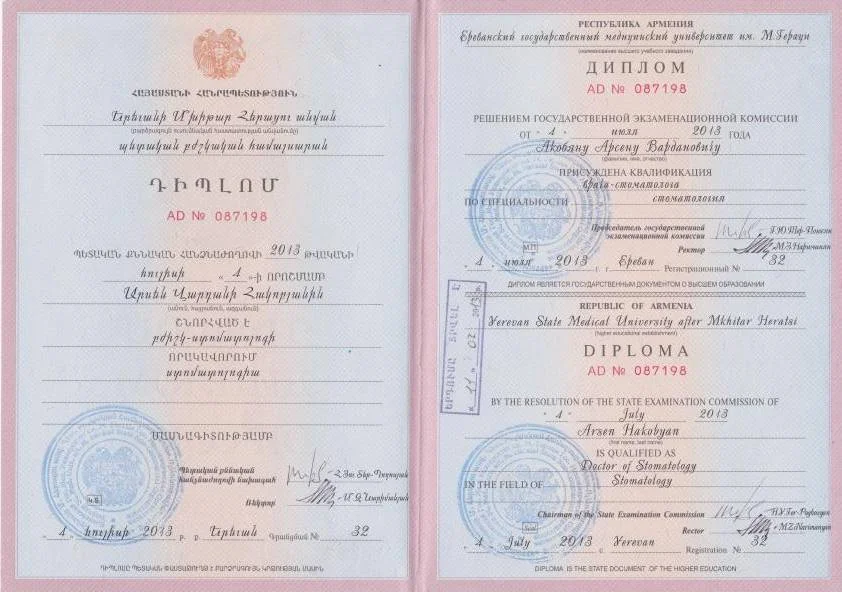 ՀԱՅԱՍՏԱՆԻ ՀԱՆՐԱՊԵՏՈՒԹՅՈՒՆ
Երևանի Մխիթար Հերացու անվան
(բարձրագույն ուսումնական հաստատության անվանումը)
պետական բժշկական համալսարան
ԴԻՊԼՈՄ
AD № 087198
ՊԵՏԱԿԱՆ ՔՆՆԱԿԱՆ ՀԱՆՁՆԱԺՈՂՈՎԻ 2013 ԹՎԱԿԱՆԻ
հուլիսի « 4 »-ի ՈՐՈՇՄԱՄԲ
Արսեն Վարդանի Հակոբյանին
(անուն, հայրանուն, ազգանուն)
ՇՆՈՐՀՎԱԾ Է
բժիշկ-ստոմատոլոգի
ՈՐԱԿԱՎՈՐՈՒՄ
ստոմատոլոգիա
ՄԱՍՆԱԳԻՏՈՒԹՅԱՄԲ
Պետական քննական
հանձնաժողովի նախագահ
Ռեկտոր
Կ.Տ.
4 հուլիսի 2013 թ. ք. Երևան Գրանցման № 32
ԴԻՊԼՈՄԸ ՊԵՏԱԿԱՆ ՓԱՍՏԱԹՈՒՂԹ Է ԲԱՐՁՐԱԳՈՒՅՆ ԿՐԹՈՒԹՅԱՆ ՄԱՍԻՆ
РЕСПУБЛИКА АРМЕНИЯ
Ереванский государственный медицинский университет им. М.Гераци
(наименование высшего учебного заведения)
ДИПЛОМ
AD № 087198
РЕШЕНИЕМ ГОСУДАРСТВЕННОЙ ЭКЗАМЕНАЦИОННОЙ КОМИССИИ
ОТ « 4 » июля 2013 ГОДА
Акобяну Арсену Вардановичу
(фамилия, имя, отчество)
ПРИСУЖДЕНА КВАЛИФИКАЦИЯ
врача-стоматолога
ПО СПЕЦИАЛЬНОСТИ стоматология
Председатель государственной
экзаменационной комиссии
Ректор
М.П.
4 июля 2013 г. г. Ереван Регистрационный № 32
ДИПЛОМ ЯВЛЯЕТСЯ ГОСУДАРСТВЕННЫМ ДОКУМЕНТОМ О ВЫСШЕМ ОБРАЗОВАНИИ
REPUBLIC OF ARMENIA
Yerevan State Medical University after Mkhitar Heratsi
(higher educational establishment)
DIPLOMA
AD № 087198
BY THE RESOLUTION OF THE STATE EXAMINATION COMMISSION OF
« 4 » July 2013
Arsen Hakobyan
(first name, last name)
IS QUALIFIED AS
Doctor of Stomatology
IN THE FIELD OF Stomatology
Chairman of the State Examination Commission
Rector M.Z.Narimanyan
4 July 2013 c. Yerevan Registration № 32
DIPLOMA IS THE STATE DOCUMENT OF THE HIGHER EDUCATION